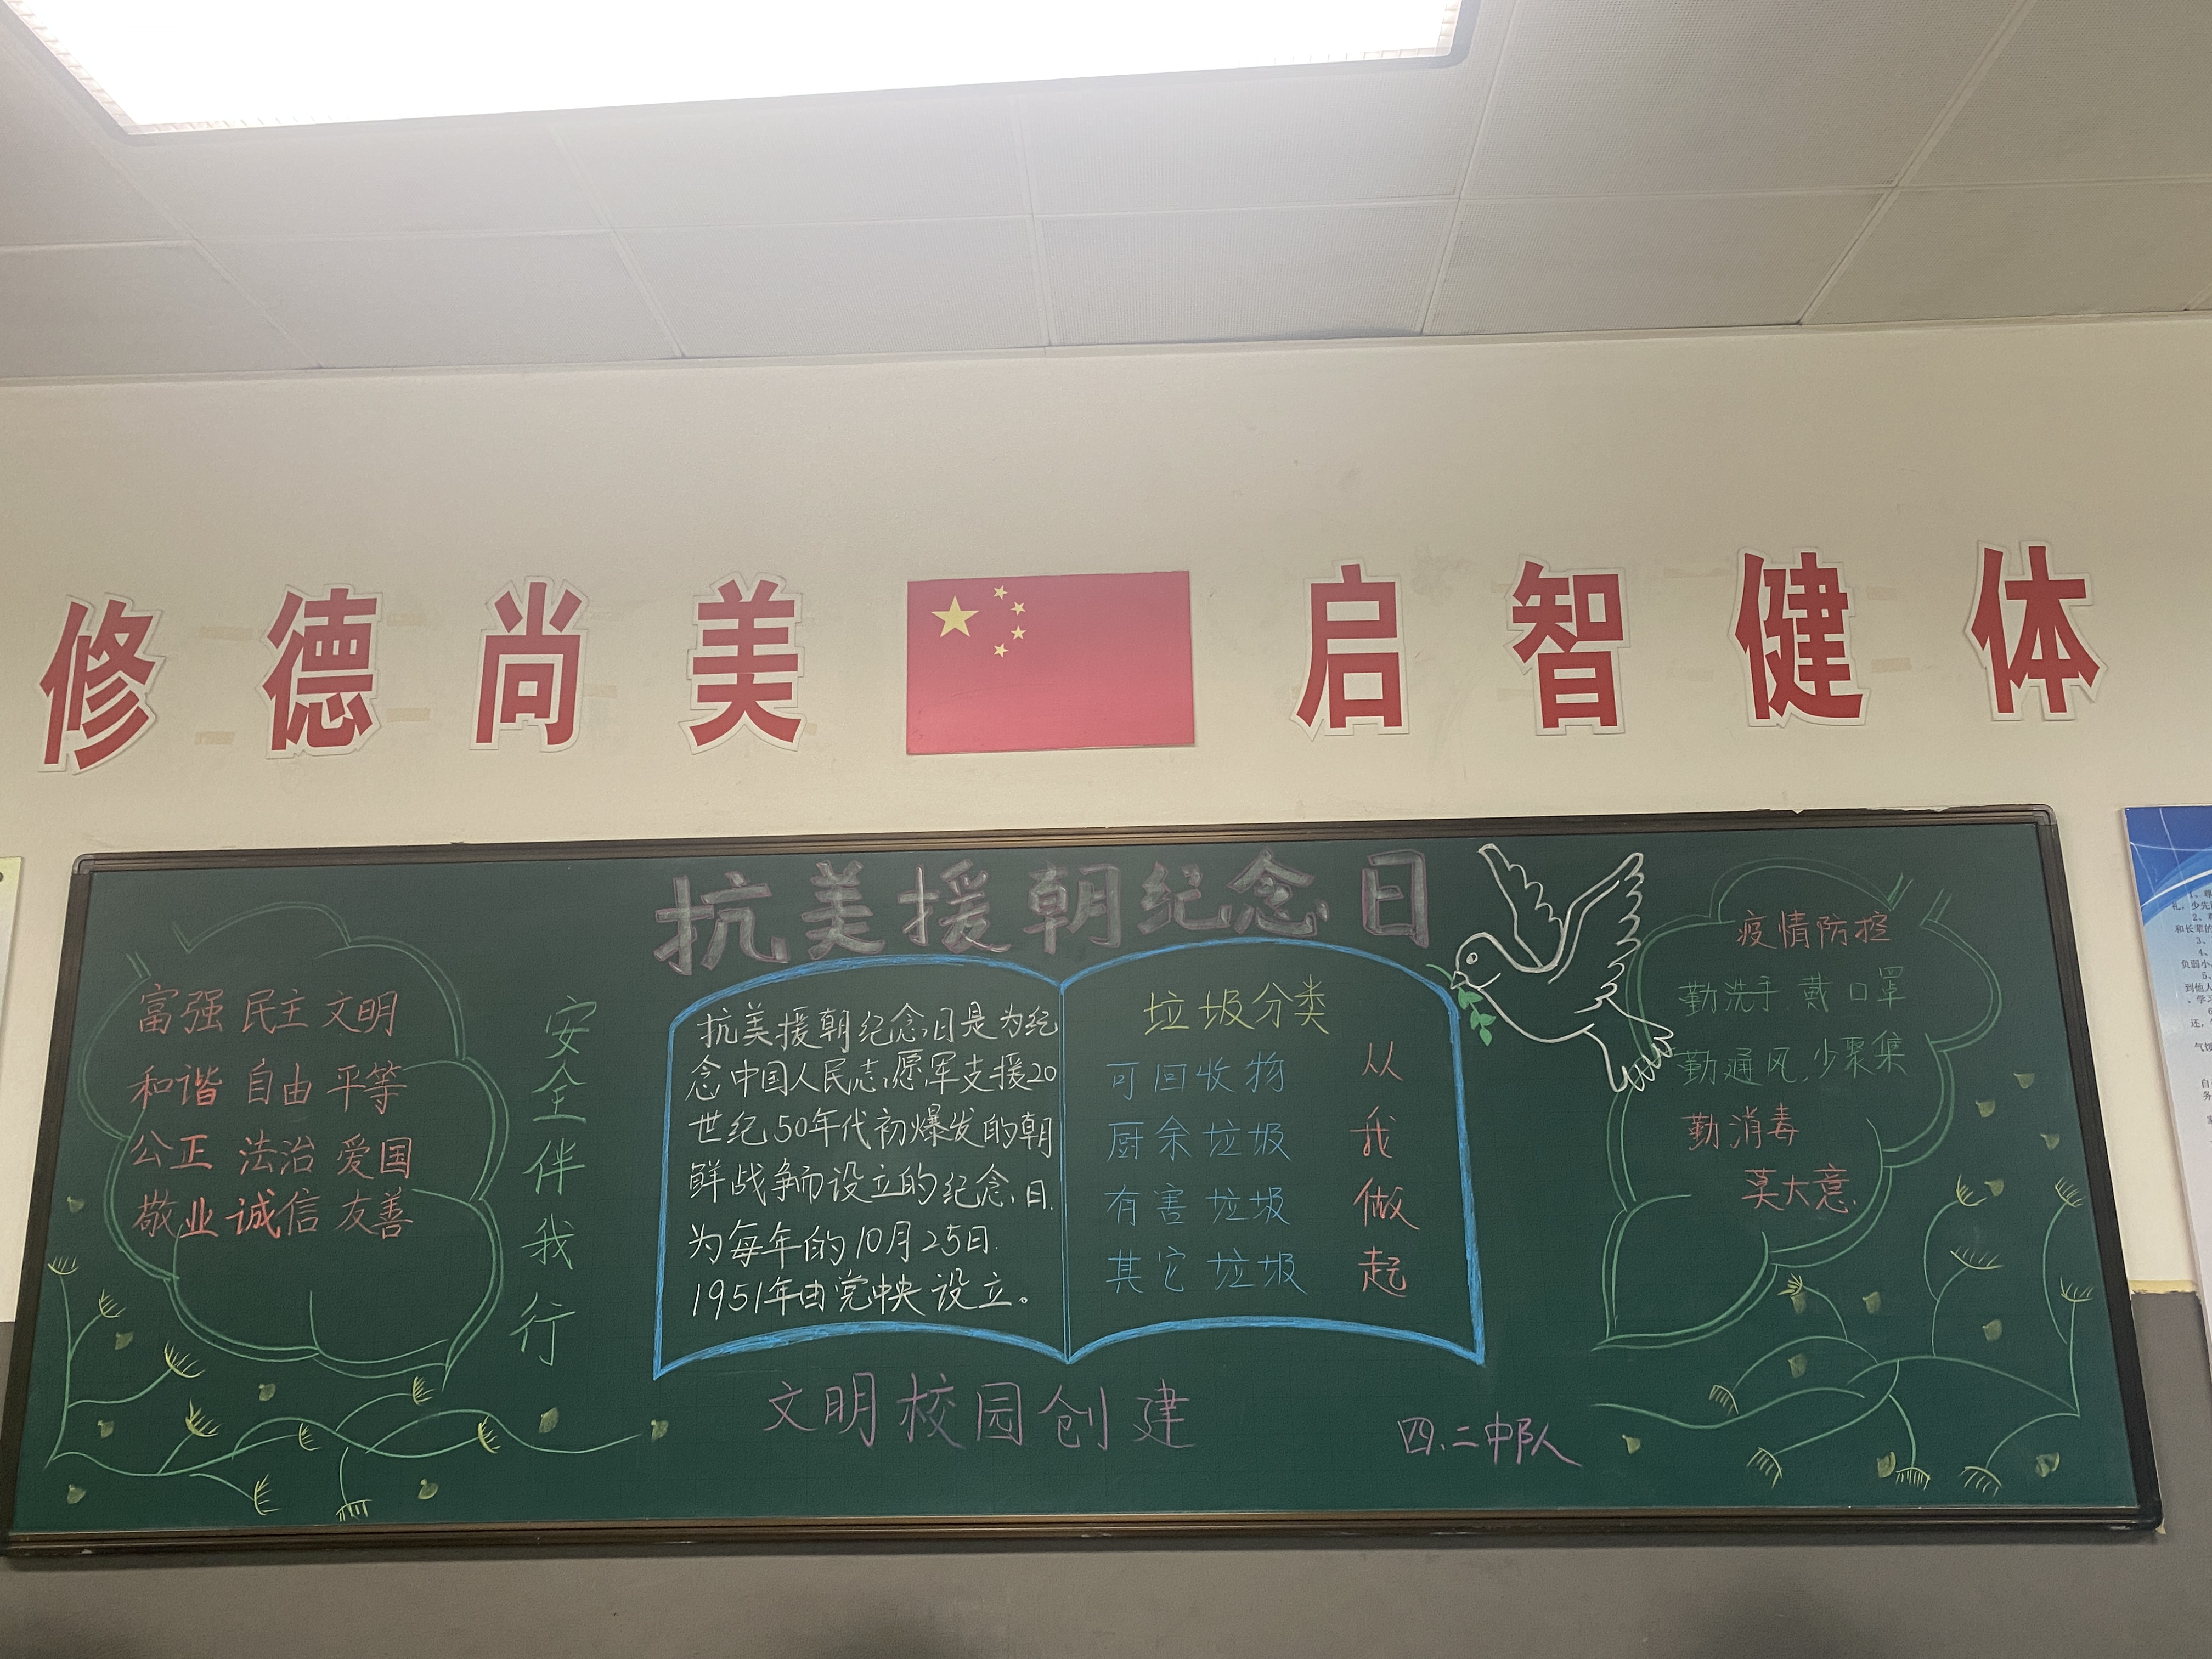 修德尚美 启智健体
抗美援朝纪念日
富强 民主 文明
和谐 自由 平等
公正 法治 爱国
敬业 诚信 友善
安全伴我行
抗美援朝纪念日是为纪
念中国人民志愿军支援20
世纪50年代初爆发的朝
鲜战争而设立的纪念日.
为每年的10月25日.
1951年由党中央设立。
垃圾分类
可回收物
厨余垃圾
有害垃圾
其它垃圾
从我做起
疫情防控
勤洗手 戴口罩
勤通风,少聚集
勤消毒
莫大意.
文明校园创建
四.二中队